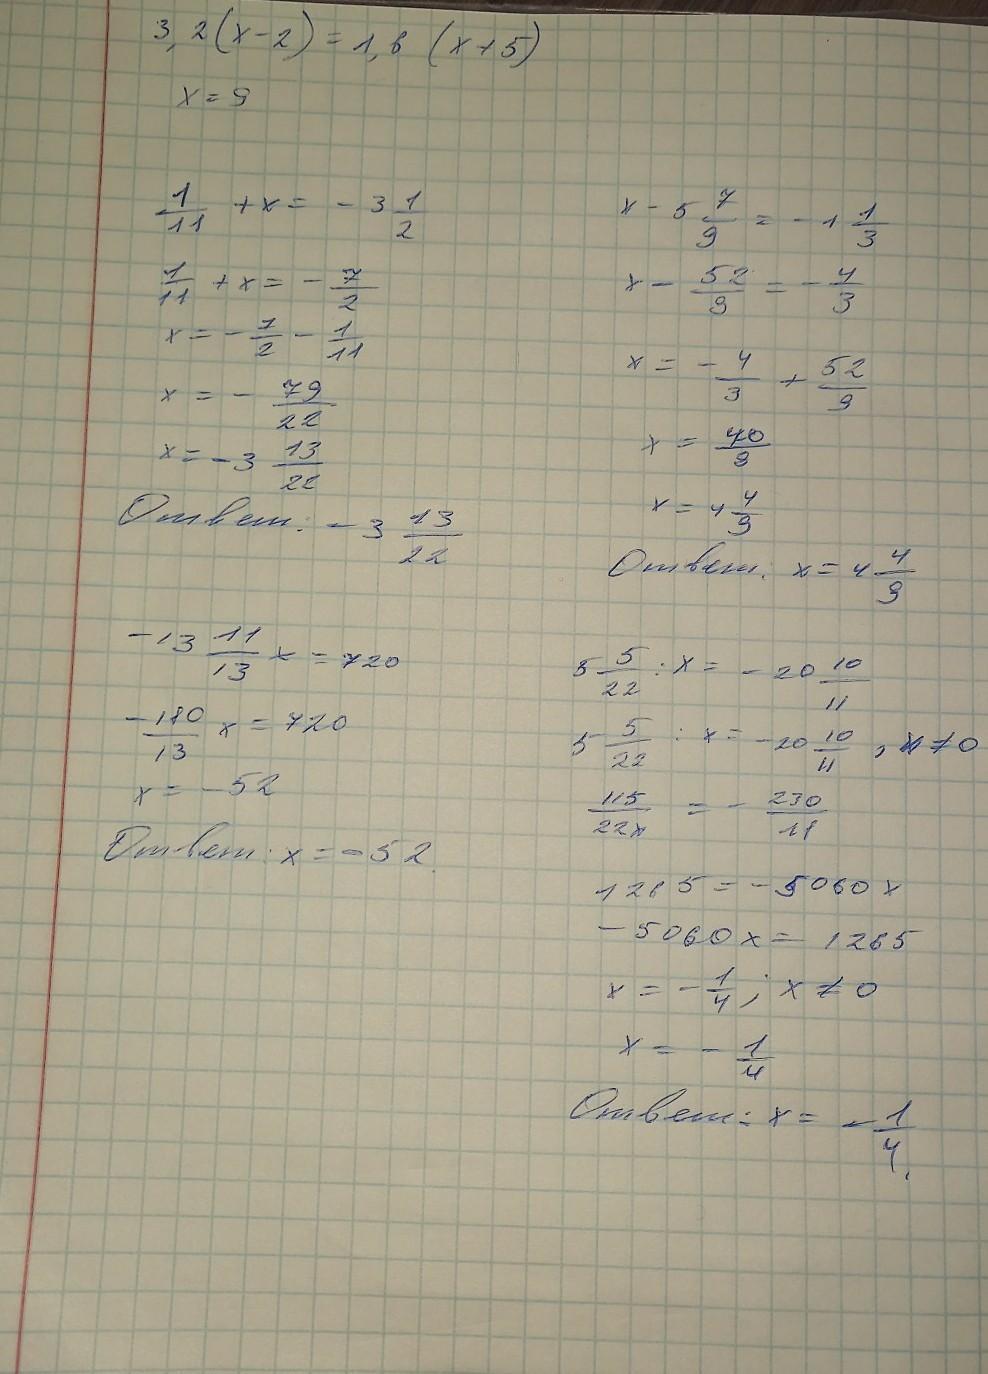 3,2(x-2)=1,6 (x+5)
x=9
1/11 +x= -3 1/2
1/11 +x= -7/2
x=-7/2-1/11
x = -79/22
x=-3 13/22
Ответ: -3 13/22
x-5 7/9=-1 1/3
x-52/9=-4/3
x=-4/3+52/9
x=40/9
x=4 4/9
Ответ: x=4 4/9
-13 11/13 x=720
-180/13 x=720
x=-52
Ответ: x=-52.
5 5/22 : x= -20 10/11
5 5/22 : x= -20 10/11 , x≠0
115/22x = -230/11
1265=-5060x
-5060x=1265
x=-1/4; x≠0
x=-1/4
Ответ: x= -1/4.